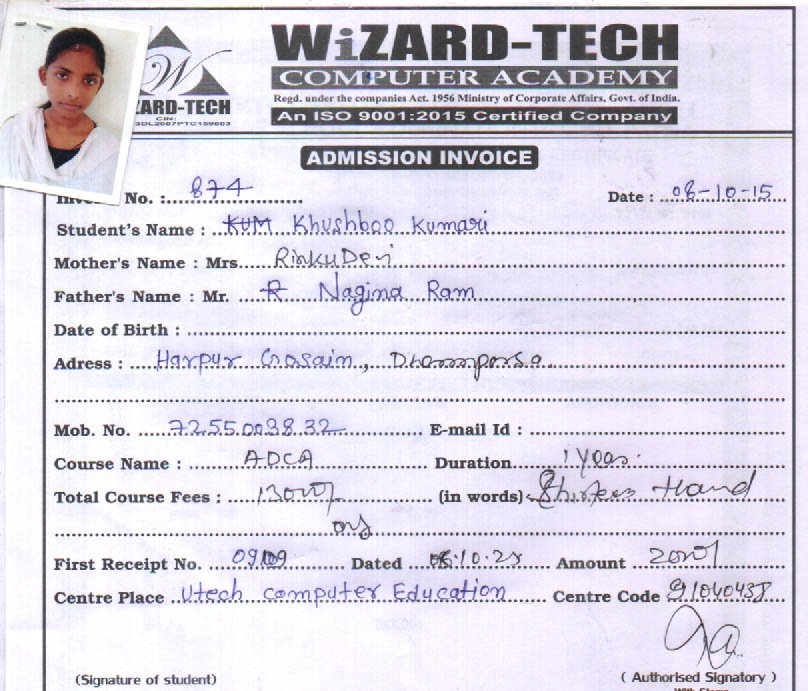 WiZARD-TECH
COMPUTER ACADEMY
Regd. under the companies Act. 1956 Ministry of Corporate Affairs, Govt. of India.
An ISO 9001:2015 Certified Company
ZARD-TECH
CIN:
DL2007PTC159803
ADMISSION INVOICE
No. : 874 Date : 08-10-15
Student's Name : KUM Khushboo Kumari
Mother's Name : Mrs Rinku Devi
Father's Name : Mr. R Nagina Ram
Date of Birth :
Adress : Harpur Gosain,
Mob. No. 7255003832 E-mail Id :
Course Name : ADCA Duration 1 Year
Total Course Fees : (in words)
First Receipt No. Dated Amount
Centre Place Utech computer Education Centre Code 91040438
(Signature of student) ( Authorised Signatory )
With Stamp